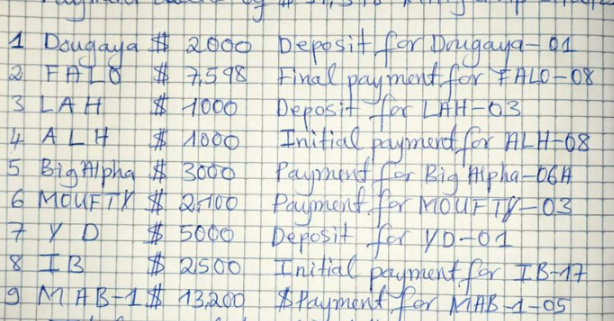 1 Dougaya $ 2000 Deposit for Dougaya-01
2 FALO $ 7,598 Final payment for FALO-08
3 LAH $ 1000 Deposit for LAH-03
4 ALH $ 1000 Initial payment for ALH-08
5 Big Alpha $ 3000 Payment for Big Alpha-06A
6 MOUFTY $ 2,100 Payment for MOUFTY-03
7 YD $ 5000 Deposit for YD-01
8 IB $ 2500 Initial payment for IB-17
9 MAB-1 $ 13,200 $ Payment for MAB-1-05